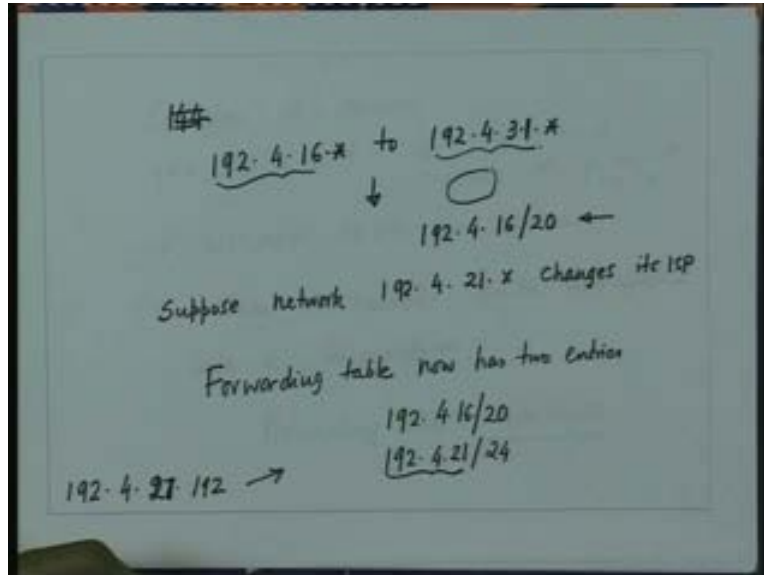 192.4.16.* to 192.4.31.*
192.4.16/20 ←
Suppose network 192.4.21.* changes its ISP
Forwarding table now has two entries
192.4.16/20
192.4.21/24
192.4.21.192 →